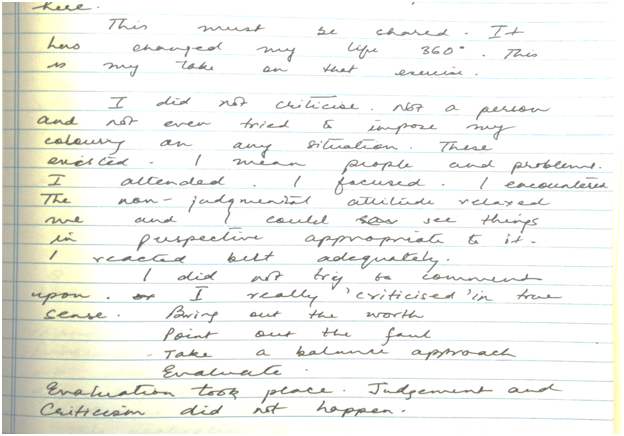 here.
This must be shared. It
has changed my life 360°. This
is my take on that exercise.
I did not criticise. Not a person
and not even tried to impose my
colouring on any situation. These
existed. I mean people and problems.
I attended. I focused. I encountered
The non-judgmental attitude relaxed
me and I could see things
in perspective appropriate to it.
I reacted but adequately.
I did not try to comment
upon. or I really 'criticised' in true
sense. Bring out the worth
Point out the fault
- Take a balance approach
Evaluate.
Evaluation took place. Judgement and
Criticism did not happen.